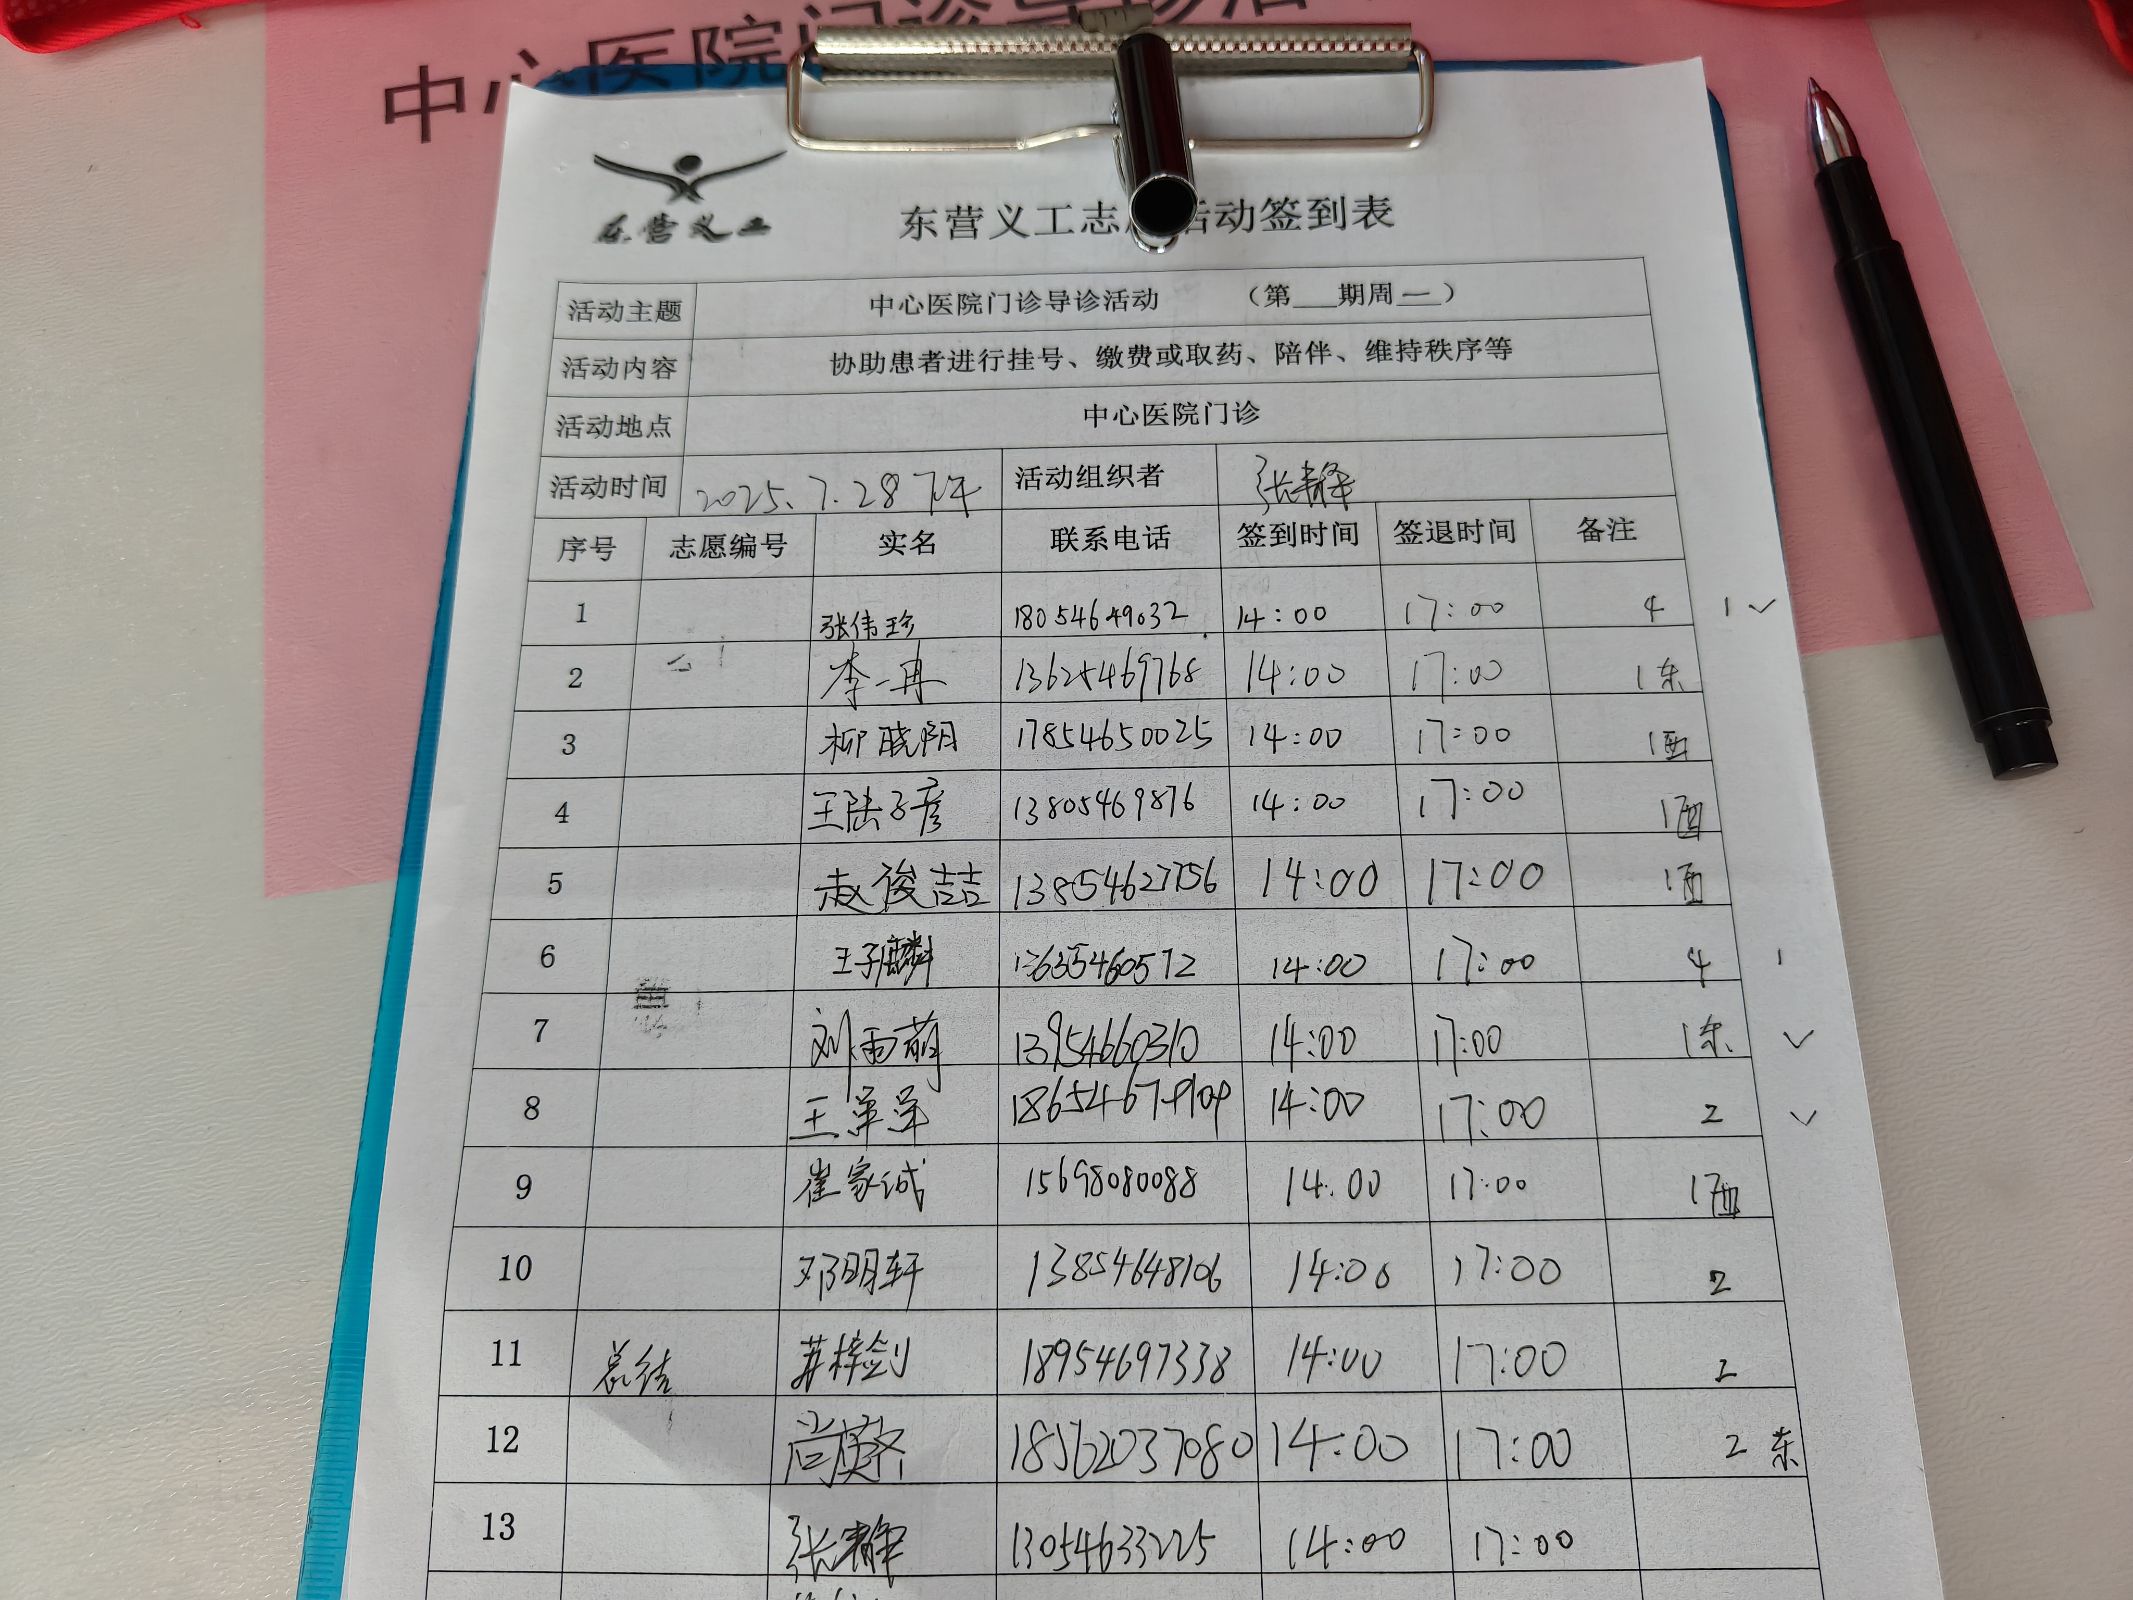 中心医院门诊导诊活
东营义工
东营义工志 活动签到表
活动主题 中心医院门诊导诊活动 （第___期周一）
活动内容 协助患者进行挂号、缴费或取药、陪伴、维持秩序等
活动地点 中心医院门诊
活动时间 2025.7.28下午 活动组织者 张静
序号 志愿编号 实名 联系电话 签到时间 签退时间 备注
1 张伟珍 18054649032 14:00 17:00 4 1 ✓
2 李一冉 13625469768 14:00 17:00 1东
3 柳晓阳 17854650025 14:00 17:00 1西
4 王陆子彦 13805469876 14:00 17:00 1西
5 赵俊喆 13854627756 14:00 17:00 1西
6 王子麟 13635460572 14:00 17:00 4 1
7 刘雨萌 13954660310 14:00 17:00 1东 ✓
8 王军军 14:00 17:00 2 ✓
9 崔家诚 15698080088 14:00 17:00 1西
10 邓明轩 13854648106 14:00 17:00 2
11 总结 苏梓剑 18954697338 14:00 17:00 2
12 尚 18562037080 14:00 17:00 2东
13 张静 13054633225 14:00 17:00